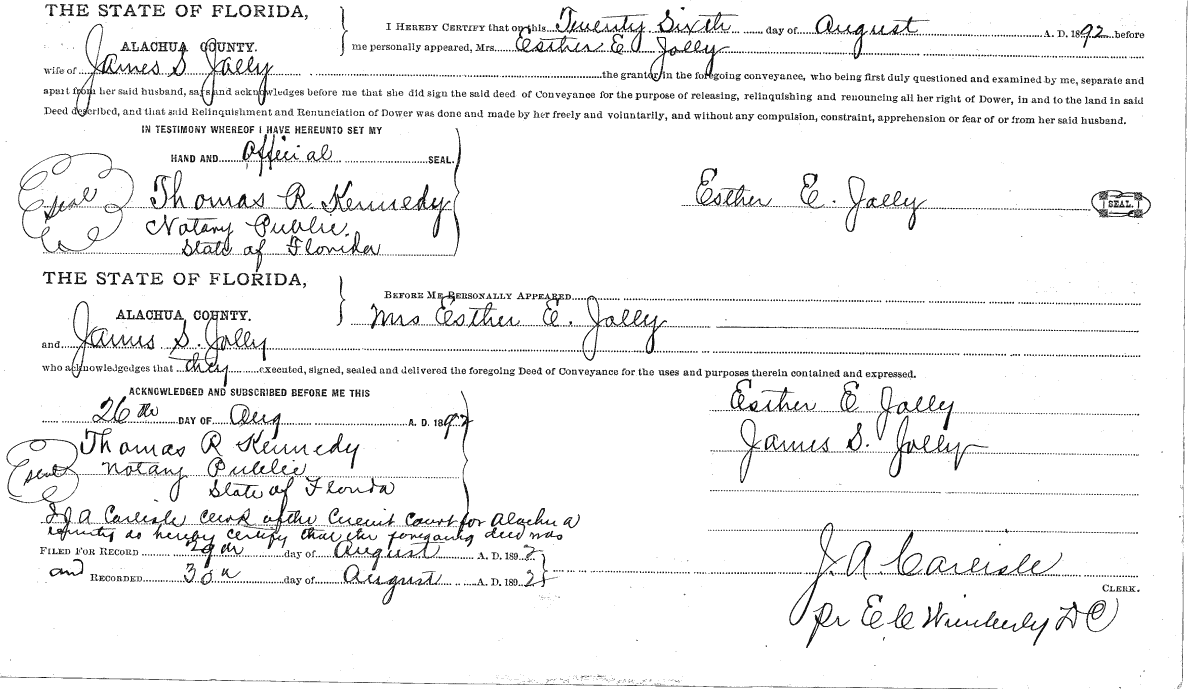 THE STATE OF FLORIDA,
ALACHUA COUNTY.
I HEREBY CERTIFY that on this Twenty Sixth day of August A. D. 1892 before
me personally appeared, Mrs. Esther E Jolly
wife of James S Jolly the grantor in the foregoing conveyance, who being first duly questioned and examined by me, separate and
apart from her said husband, says and acknowledges before me that she did sign the said deed of Conveyance for the purpose of releasing, relinquishing and renouncing all her right of Dower, in and to the land in said
Deed described, and that said Relinquishment and Renunciation of Dower was done and made by her freely and voluntarily, and without any compulsion, constraint, apprehension or fear of or from her said husband.
IN TESTIMONY WHEREOF I HAVE HEREUNTO SET MY
HAND AND Official SEAL.
Seal
Thomas R. Kennedy
Notary Public.
State of Florida
Esther E. Jolly
SEAL.
THE STATE OF FLORIDA,
ALACHUA COUNTY.
BEFORE ME PERSONALLY APPEARED
Mrs Esther E. Jolly
and James S. Jolly
who acknowledges that they executed, signed, sealed and delivered the foregoing Deed of Conveyance for the uses and purposes therein contained and expressed.
ACKNOWLEDGED AND SUBSCRIBED BEFORE ME THIS
26th DAY OF Aug A. D. 1892
Seal
Thomas R Kennedy
Notary Public
State of Florida
Esther E Jolly
James S. Jolly
I J A Carlisle Clerk of the Circuit Court for Alachua
County do hereby certify that the foregoing deed was
FILED FOR RECORD 29th day of August A. D. 1892
and RECORDED 30th day of August A. D. 1892
J. A. Carlisle
CLERK.
pr E C Wimberly DC